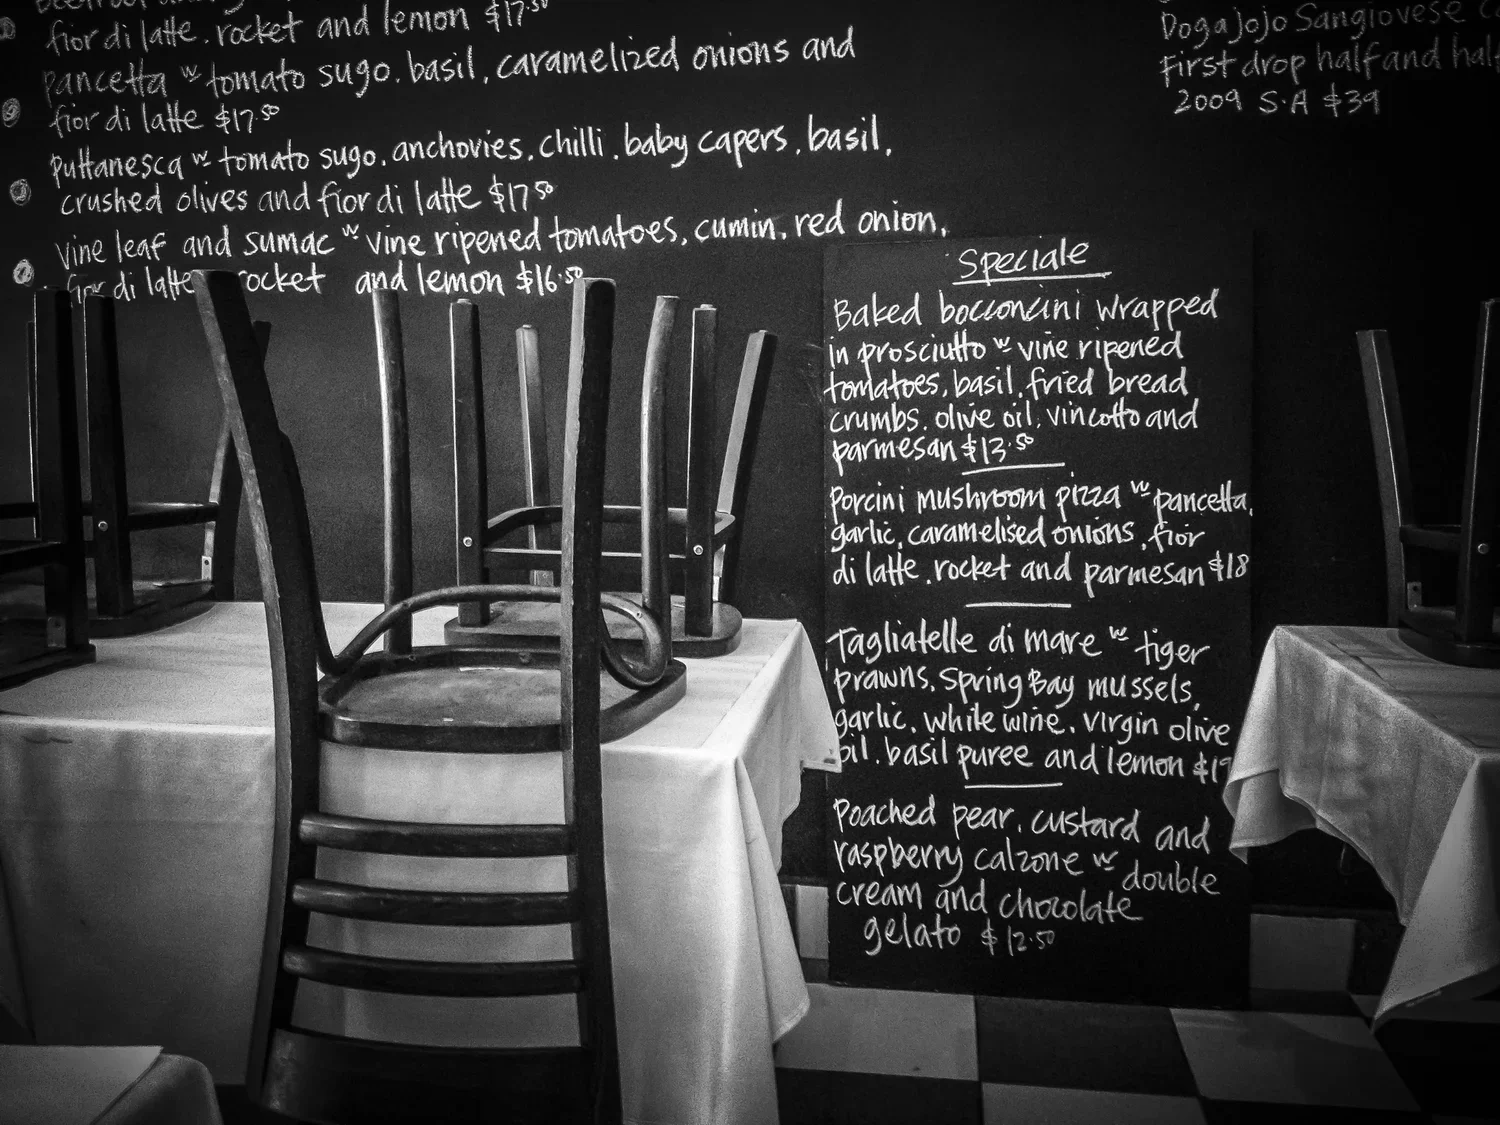 fior di latte, rocket and lemon $17.50
pancetta w tomato sugo, basil, caramelized onions and
fior di latte $17.50
puttanesca w tomato sugo, anchovies, chilli, baby capers, basil,
crushed olives and fior di latte $17.50
vine leaf and sumac w vine ripened tomatoes, cumin, red onion,
fior di latte rocket and lemon $16.50
Dogajojo Sangiovese
First drop half and half
2009 S.A $39
Speciale
Baked bocconcini wrapped
in prosciutto w vine ripened
tomatoes, basil, fried bread
crumbs, olive oil, vincotto and
parmesan $13.50
Porcini mushroom pizza w pancetta,
garlic, caramelised onions, fior
di latte, rocket and parmesan $18
Tagliatelle di mare w tiger
prawns, Spring Bay mussels,
garlic, white wine, virgin olive
oil, basil puree and lemon $19
Poached pear, custard and
raspberry calzone w double
cream and chocolate
gelato $12.50